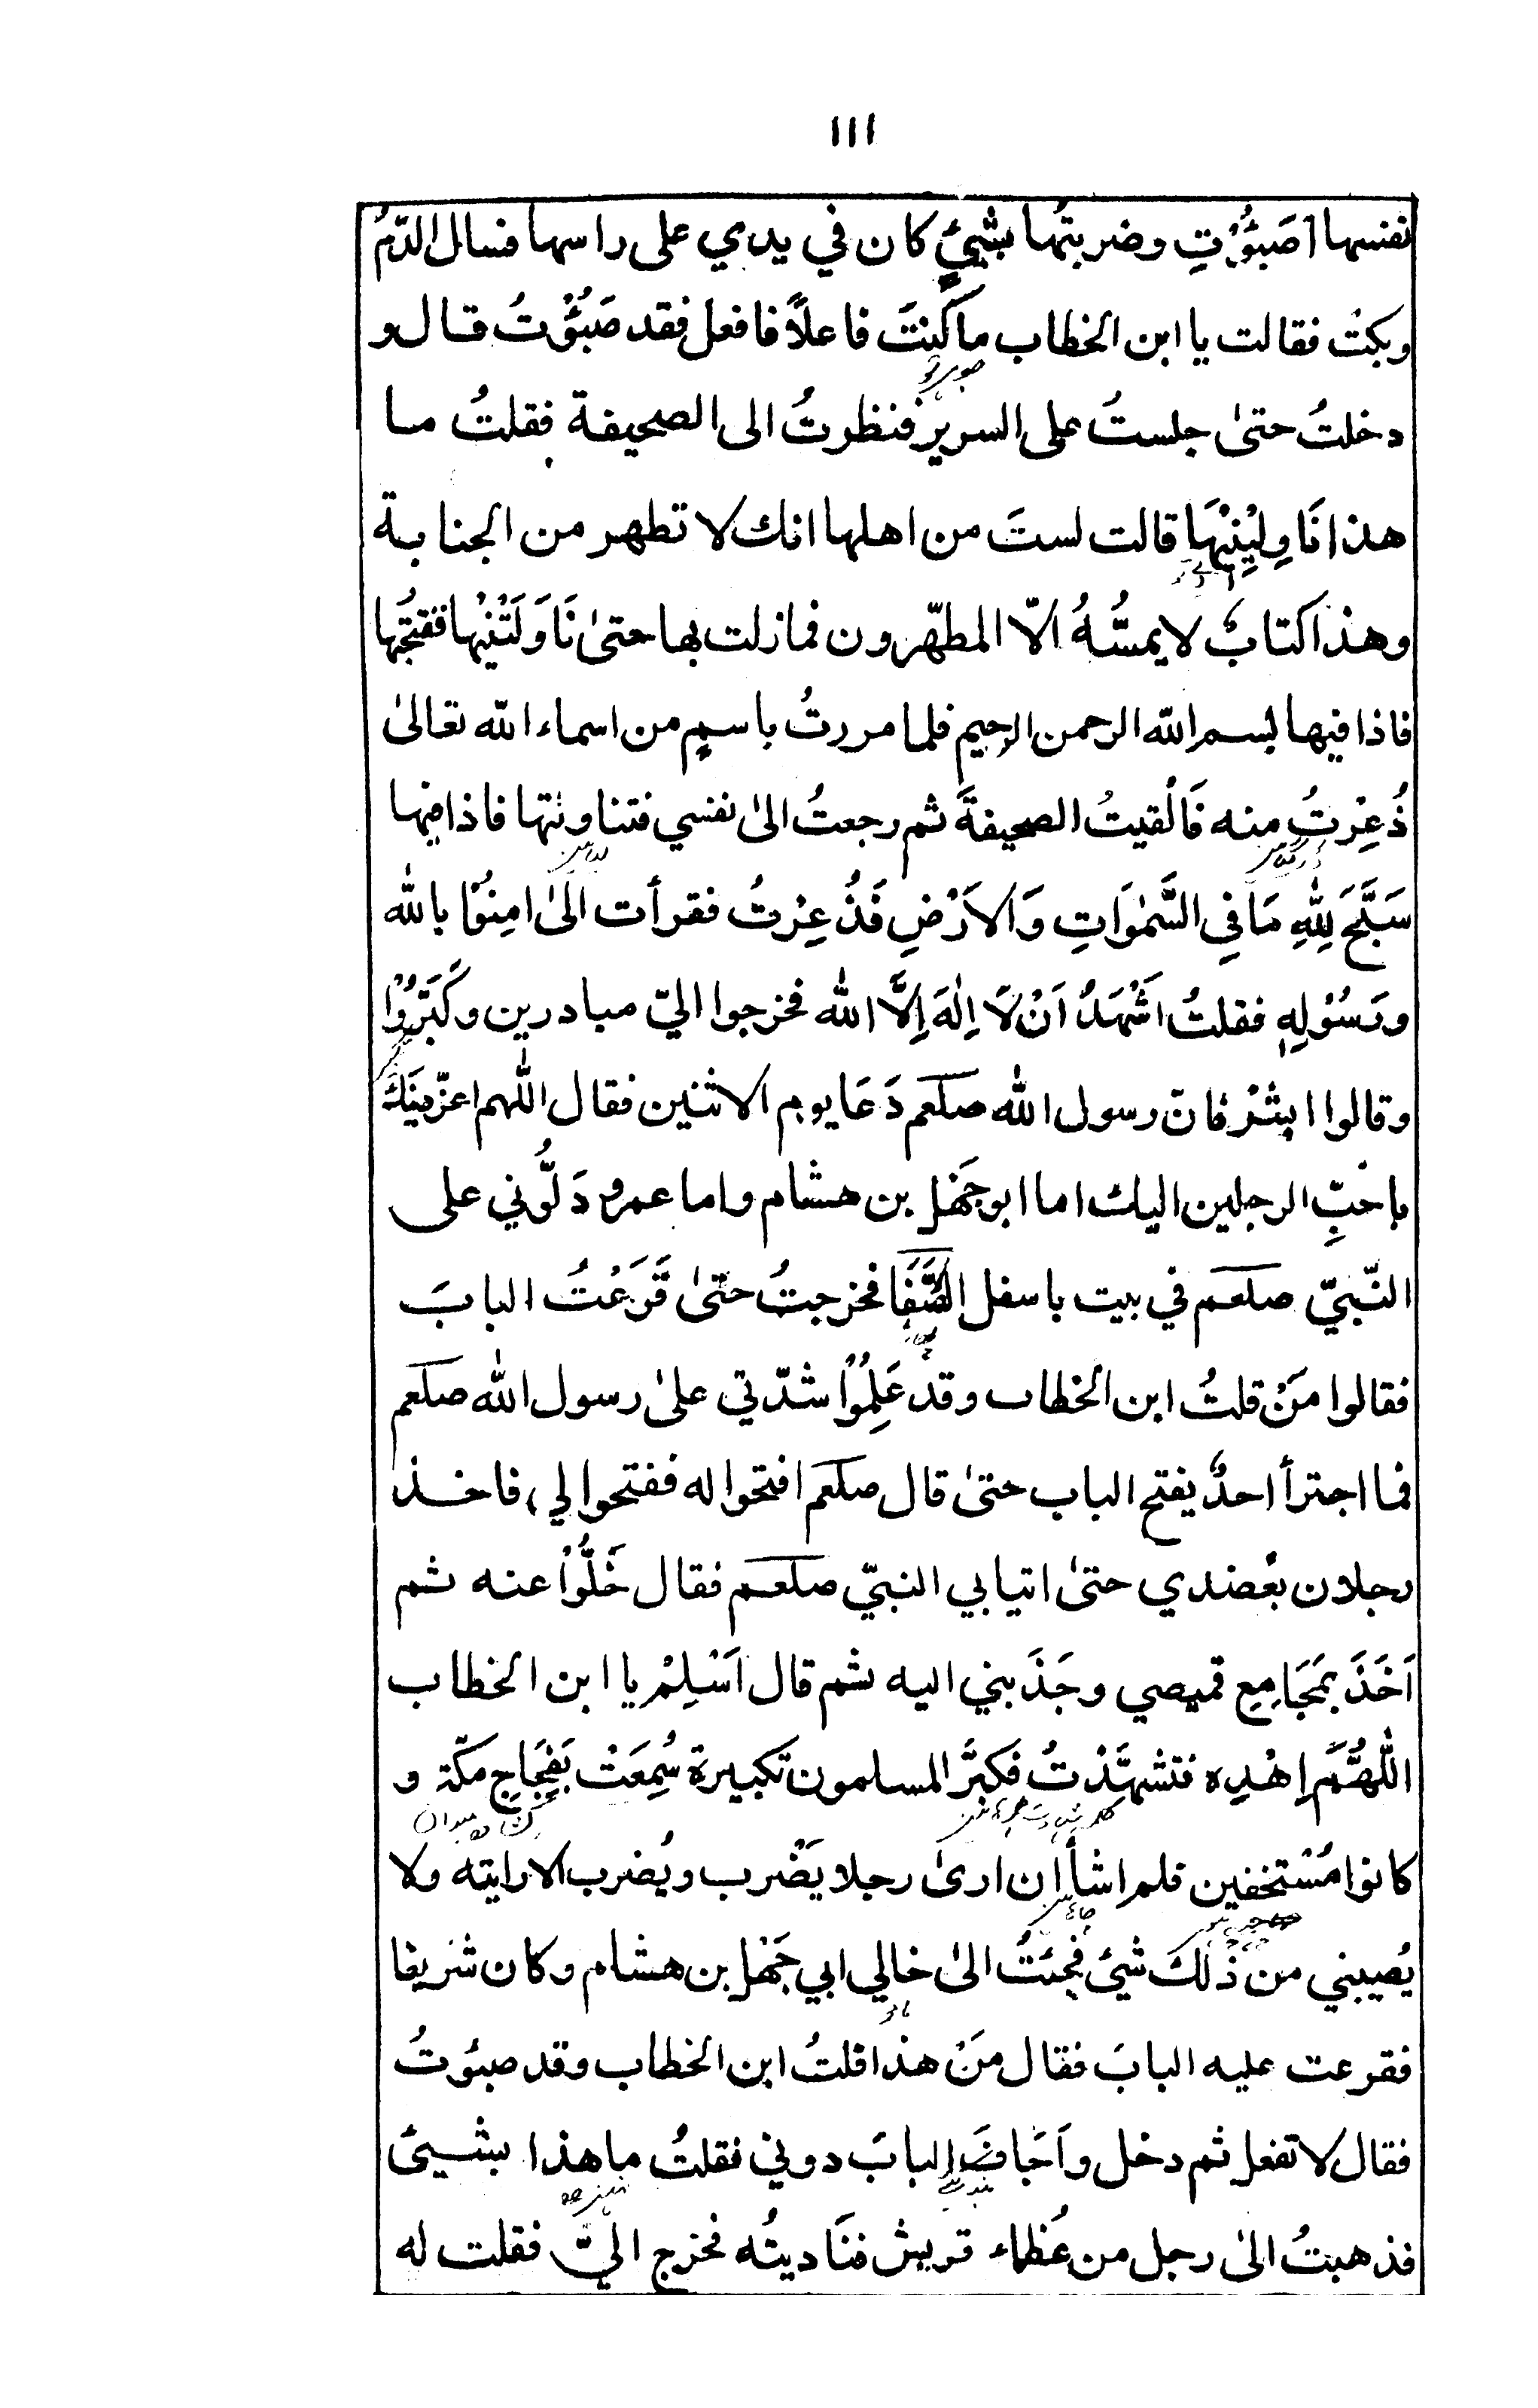 ١١١
نفسها أصَبُؤْتِ وضربتُها بشيئٍ كان في يدي على راسها فسال الدّمُ
وبكتْ فقالت يا ابن الخطاب ما كنتَ فاعلاً فافعل فقد صَبُؤْتُ قال و
دخلتُ حتىٰ جلستُ على السرير فنظرتُ الى الصحيفة فقلتُ ما
هذا نَاوِلِيْنِيْهَا قالت لستَ من اهلها انك لا تطهر من الجنابة
وهذا كتابٌ لا يمسُّهُ الّا المطهّرون فما زلت بها حتىٰ نَاوَلَتْنِيْها ففتحتُها
فاذا فيها بسم الله الرحمن الرحيم فلما مررتُ باسمٍ من اسماء الله تعالىٰ
ذُعِرْتُ منه فَاَلْقيتُ الصحيفةَ ثم رجعتُ الىٰ نفسي فتناولتها فاذا فيها
سَبَّحَ لِلّٰهِ مَا فِي السَّمٰوَاتِ وَالاَرْضِ فَذُعِرْتُ فقرأت الىٰ اٰمِنُوْا بالله
ورَسُوْلِهٖ فقلتُ اَشْهَدُ اَنْ لَا اِلٰهَ اِلَّا الله فخرجوا اليّ مبادرين وكَبَّرُوْا
وقالوا ابشرْ فانّ رسول الله صلعم دَعَا يوم الاثنين فقال اللّٰهم اعزّ دِيْنَكَ
باحَبِّ الرجلين اليك اما ابو جَهْل بن هشام واما عمر و دَلُّوني على
النّبيّ صلعم في بيت باسفل الصَّفَا فخرجتُ حتىٰ قَرَعْتُ البابَ
فقالوا مَنْ قلتُ ابن الخطاب وقد عَلِمُوْا شدّتي علىٰ رسول الله صلعم
فما اجترأ احدٌ يفتح الباب حتىٰ قال صلعم افتحوا له ففتحوا لي، فاخذ
رجلان بعضدي حتىٰ اتيا بي النبيّ صلعم فقال خَلُّوْا عنه ثم
اَخَذَ بمَجَامِعِ قميصي وجَذَبني اليه ثم قال اَسْلِمْ يا ابن الخطاب
اللّٰهُمَّ اِهْدِه فتشهَّدْتُ فكبَّرَ المسلمون تكبيرة سُمِعَتْ بفِجَاجِ مكّة و
كانوا مُسْتخفين فلم اشأ ان ارىٰ رجلا يَضْرب ويُضرب الا رايته ولا
يُصيبني من ذٰلكَ شيئ فجئتُ الىٰ خالي ابي جَهْل بن هشام وكان شريفا
فقرعت عليه البابَ فقال مَنْ هذا قلتُ ابن الخطاب وقد صبئوتُ
فقال لا تفعل ثم دخل واَجَافَ البابَ دوني فقلتُ ما هذا بشيئ
فذهبتُ الىٰ رجل من عُظماء قريش فنَاديتُه فخرج اليَّ فقلت له